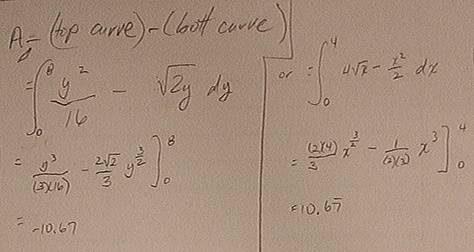 A = (top curve) - (bott curve)
= ∫₀⁸ y²/16 - √2y dy
= y³/(3)(16) - 2√2/3 y^(3/2) ]₀⁸
= -10.67
or = ∫₀⁴ 4√x - x²/2 dx
= (2)(4)/3 x^(3/2) - 1/(2)(3) x³ ]₀⁴
= 10.67